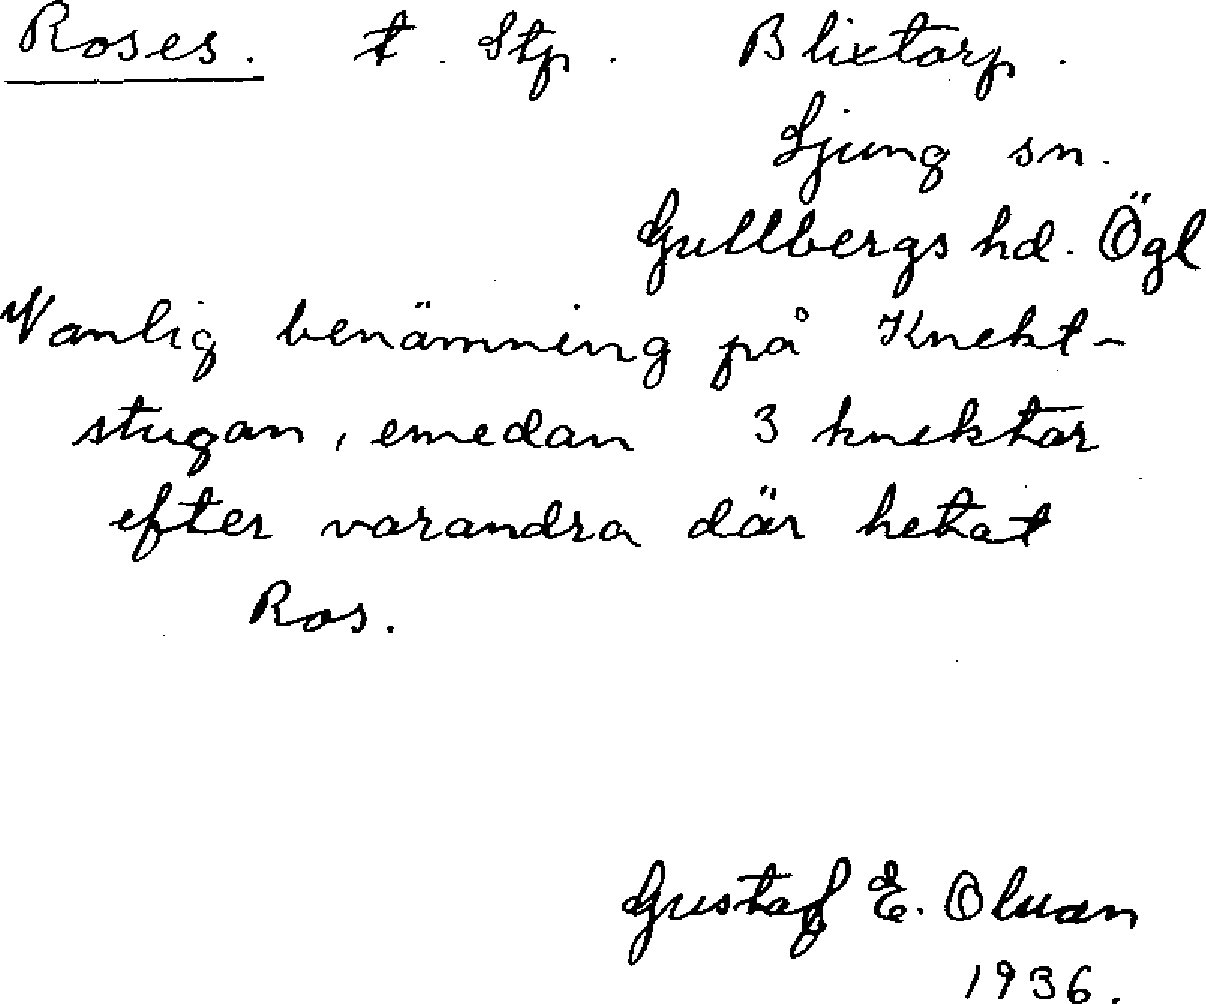 Roses. t. Stp. Blixtorp.
Ljung sn.
Gullbergs hd. Ögl
Vanlig benämning på Knekt-
stugan, emedan 3 knektar
efter varandra där hetat
Ros.
Gustaf E. Oluan
1936.